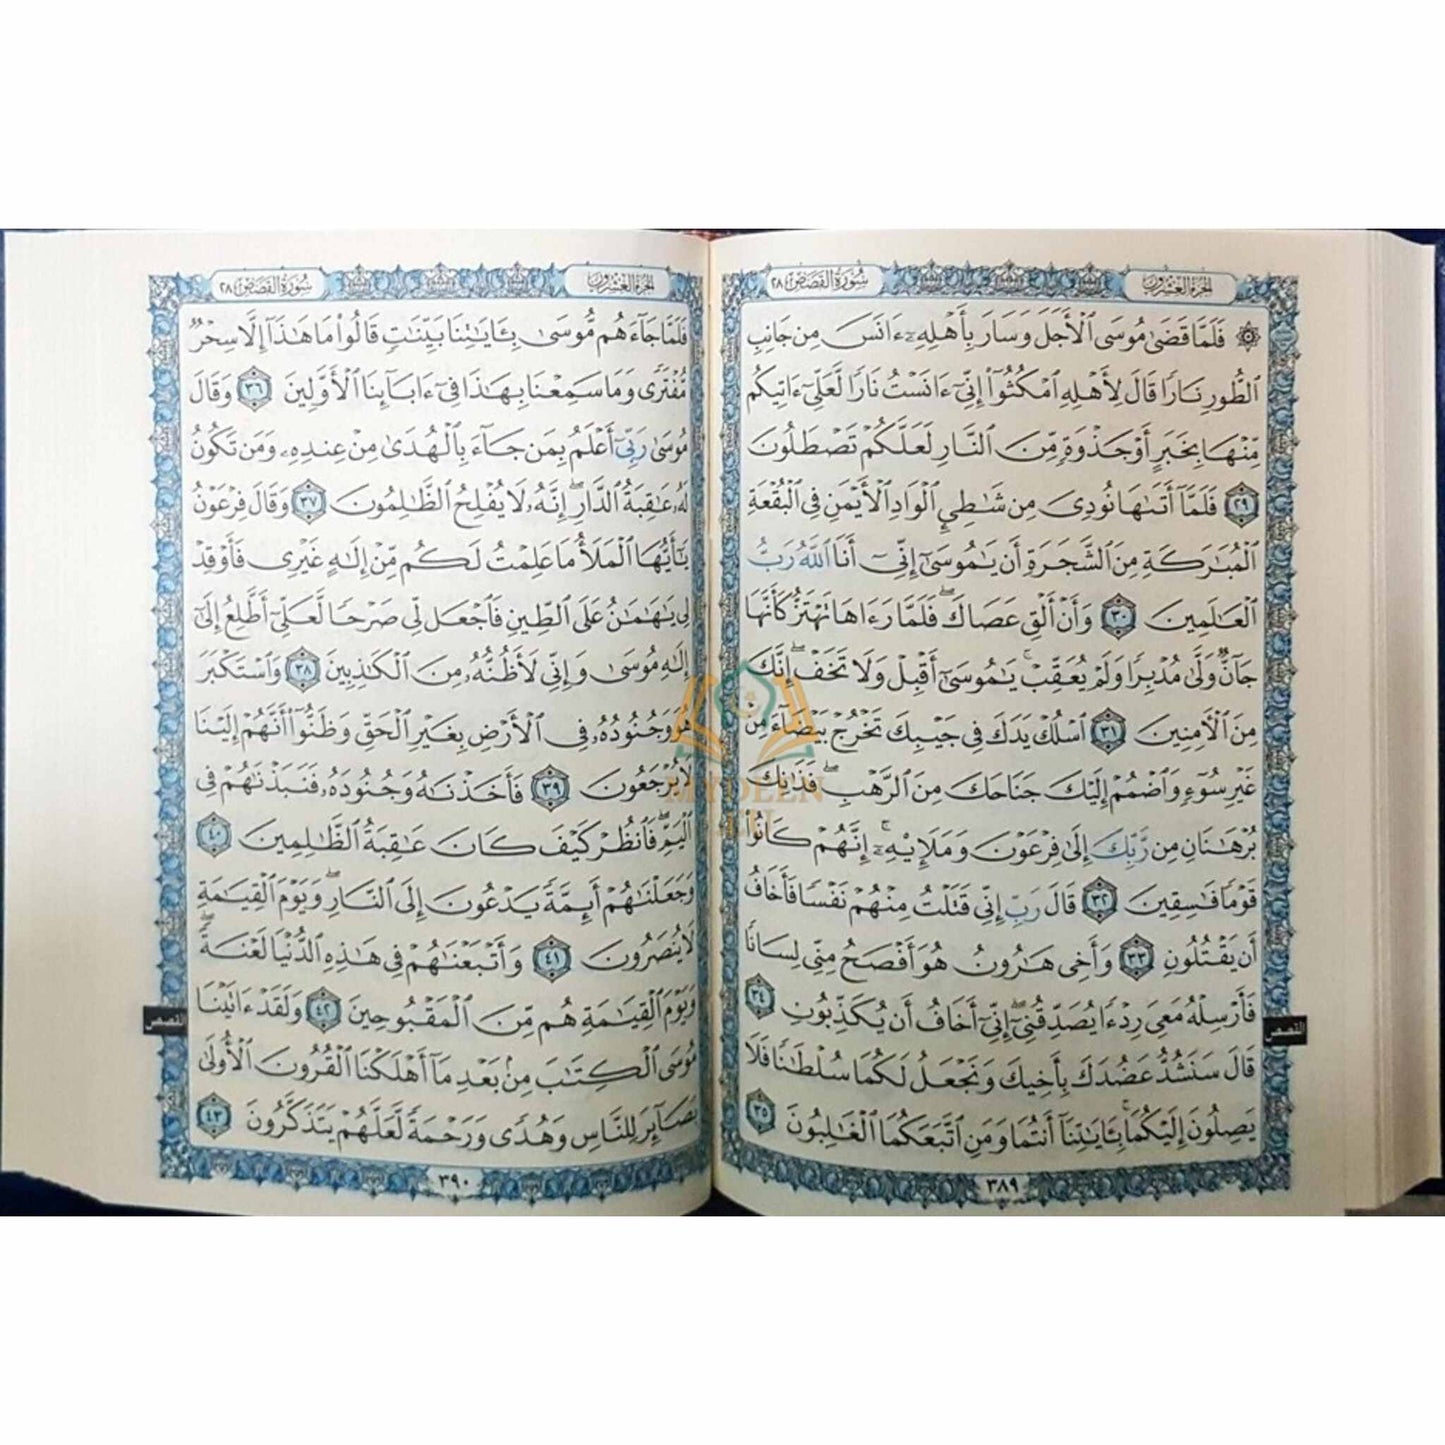 سُورَةُ القَصَصِ ٢٨
الجُزءُ العِشْرُونَ
۞ فَلَمَّا قَضَىٰ مُوسَى ٱلْأَجَلَ وَسَارَ بِأَهْلِهِۦٓ ءَانَسَ مِن جَانِبِ
ٱلطُّورِ نَارًا قَالَ لِأَهْلِهِ ٱمْكُثُوٓا۟ إِنِّىٓ ءَانَسْتُ نَارًا لَّعَلِّىٓ ءَاتِيكُم
مِّنْهَا بِخَبَرٍ أَوْ جَذْوَةٍ مِّنَ ٱلنَّارِ لَعَلَّكُمْ تَصْطَلُونَ
٢٩ فَلَمَّآ أَتَىٰهَا نُودِىَ مِن شَـٰطِئِ ٱلْوَادِ ٱلْأَيْمَنِ فِى ٱلْبُقْعَةِ
ٱلْمُبَـٰرَكَةِ مِنَ ٱلشَّجَرَةِ أَن يَـٰمُوسَىٰٓ إِنِّىٓ أَنَا ٱللَّهُ رَبُّ
ٱلْعَـٰلَمِينَ ٣٠ وَأَنْ أَلْقِ عَصَاكَ ۖ فَلَمَّا رَءَاهَا تَهْتَزُّ كَأَنَّهَا
جَآنٌّ وَلَّىٰ مُدْبِرًا وَلَمْ يُعَقِّبْ ۚ يَـٰمُوسَىٰٓ أَقْبِلْ وَلَا تَخَفْ ۖ إِنَّكَ
مِنَ ٱلْـَٔامِنِينَ ٣١ ٱسْلُكْ يَدَكَ فِى جَيْبِكَ تَخْرُجْ بَيْضَآءَ مِنْ
غَيْرِ سُوٓءٍ وَٱضْمُمْ إِلَيْكَ جَنَاحَكَ مِنَ ٱلرَّهْبِ ۖ فَذَٰنِكَ
بُرْهَـٰنَانِ مِن رَّبِّكَ إِلَىٰ فِرْعَوْنَ وَمَلَإِي۟هِۦٓ ۚ إِنَّهُمْ كَانُوا۟
قَوْمًا فَـٰسِقِينَ ٣٢ قَالَ رَبِّ إِنِّى قَتَلْتُ مِنْهُمْ نَفْسًا فَأَخَافُ
أَن يَقْتُلُونِ ٣٣ وَأَخِى هَـٰرُونُ هُوَ أَفْصَحُ مِنِّى لِسَانًا
فَأَرْسِلْهُ مَعِىَ رِدْءًا يُصَدِّقُنِىٓ ۖ إِنِّىٓ أَخَافُ أَن يُكَذِّبُونِ ٣٤
قَالَ سَنَشُدُّ عَضُدَكَ بِأَخِيكَ وَنَجْعَلُ لَكُمَا سُلْطَـٰنًا فَلَا
يَصِلُونَ إِلَيْكُمَا ۚ بِـَٔايَـٰتِنَآ أَنتُمَا وَمَنِ ٱتَّبَعَكُمَا ٱلْغَـٰلِبُونَ ٣٥
القصص
٣٨٩
سُورَةُ القَصَصِ ٢٨
الجُزءُ العِشْرُونَ
فَلَمَّا جَآءَهُم مُّوسَىٰ بِـَٔايَـٰتِنَا بَيِّنَـٰتٍ قَالُوا۟ مَا هَـٰذَآ إِلَّا سِحْرٌ
مُّفْتَرًى وَمَا سَمِعْنَا بِهَـٰذَا فِىٓ ءَابَآئِنَا ٱلْأَوَّلِينَ ٣٦ وَقَالَ
مُوسَىٰ رَبِّىٓ أَعْلَمُ بِمَن جَآءَ بِٱلْهُدَىٰ مِنْ عِندِهِۦ وَمَن تَكُونُ
لَهُۥ عَـٰقِبَةُ ٱلدَّارِ ۖ إِنَّهُۥ لَا يُفْلِحُ ٱلظَّـٰلِمُونَ ٣٧ وَقَالَ فِرْعَوْنُ
يَـٰٓأَيُّهَا ٱلْمَلَأُ مَا عَلِمْتُ لَكُم مِّنْ إِلَـٰهٍ غَيْرِى فَأَوْقِدْ
لِى يَـٰهَـٰمَـٰنُ عَلَى ٱلطِّينِ فَٱجْعَل لِّى صَرْحًا لَّعَلِّىٓ أَطَّلِعُ إِلَىٰٓ
إِلَـٰهِ مُوسَىٰ وَإِنِّى لَأَظُنُّهُۥ مِنَ ٱلْكَـٰذِبِينَ ٣٨ وَٱسْتَكْبَرَ
هُوَ وَجُنُودُهُۥ فِى ٱلْأَرْضِ بِغَيْرِ ٱلْحَقِّ وَظَنُّوٓا۟ أَنَّهُمْ إِلَيْنَا
لَا يُرْجَعُونَ ٣٩ فَأَخَذْنَـٰهُ وَجُنُودَهُۥ فَنَبَذْنَـٰهُمْ فِى
ٱلْيَمِّ ۖ فَٱنظُرْ كَيْفَ كَانَ عَـٰقِبَةُ ٱلظَّـٰلِمِينَ ٤٠
وَجَعَلْنَـٰهُمْ أَئِمَّةً يَدْعُونَ إِلَى ٱلنَّارِ ۖ وَيَوْمَ ٱلْقِيَـٰمَةِ
لَا يُنصَرُونَ ٤١ وَأَتْبَعْنَـٰهُمْ فِى هَـٰذِهِ ٱلدُّنْيَا لَعْنَةً ۖ
وَيَوْمَ ٱلْقِيَـٰمَةِ هُم مِّنَ ٱلْمَقْبُوحِينَ ٤٢ وَلَقَدْ ءَاتَيْنَا
مُوسَى ٱلْكِتَـٰبَ مِنۢ بَعْدِ مَآ أَهْلَكْنَا ٱلْقُرُونَ ٱلْأُولَىٰ
بَصَآئِرَ لِلنَّاسِ وَهُدًى وَرَحْمَةً لَّعَلَّهُمْ يَتَذَكَّرُونَ ٤٣
القصص
٣٩٠